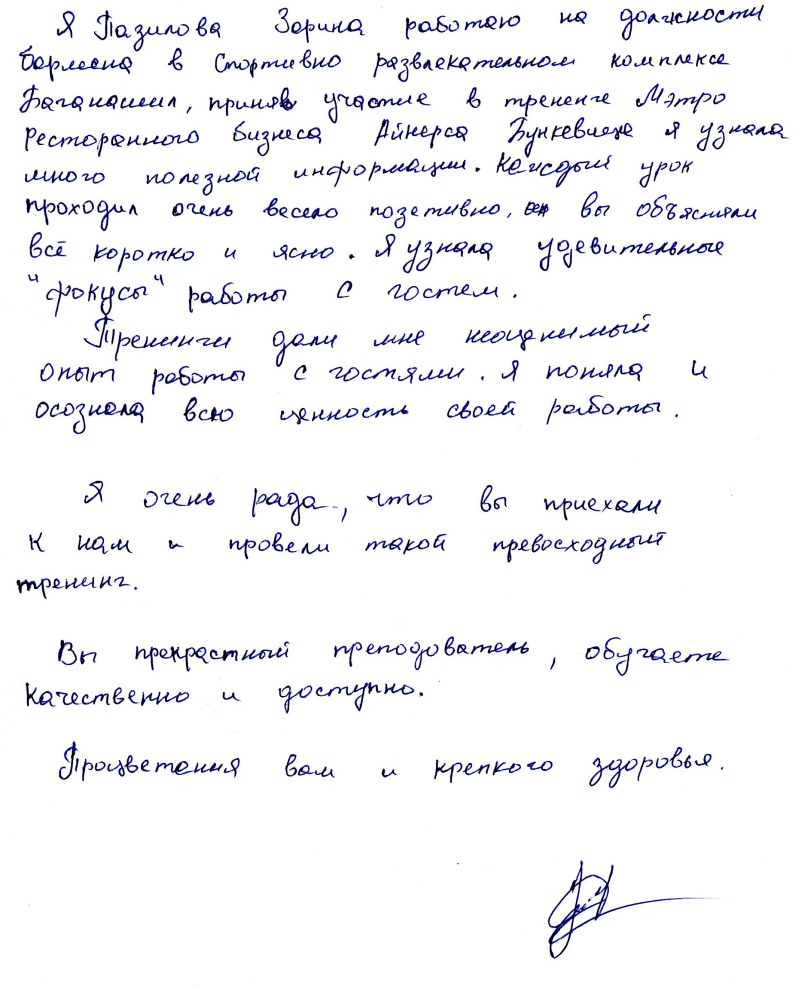 Я Пазилова Зарина работаю на должности
бармена в Спортивно развлекательном комплексе
Баганашил, приняв участие в трененге Мэтро
Ресторанного бизнеса Айнерса Бункевица я узнала
много полезной информации. Каждый урок
проходил очень весело позетивно, вы объясняли
всё коротко и ясно. Я узнала удевительные
"фокусы" работы с гостем.
Тренинги дали мне неоценимый
опыт работы с гостями. Я поняла и
осознала всю ценность своей работы.
Я очень рада, что вы приехали
к нам и провели такой превосходный
тренинг.
Вы прекрастный преподователь, обучаете
качественно и доступно.
Процветания вам и крепкого здоровья.